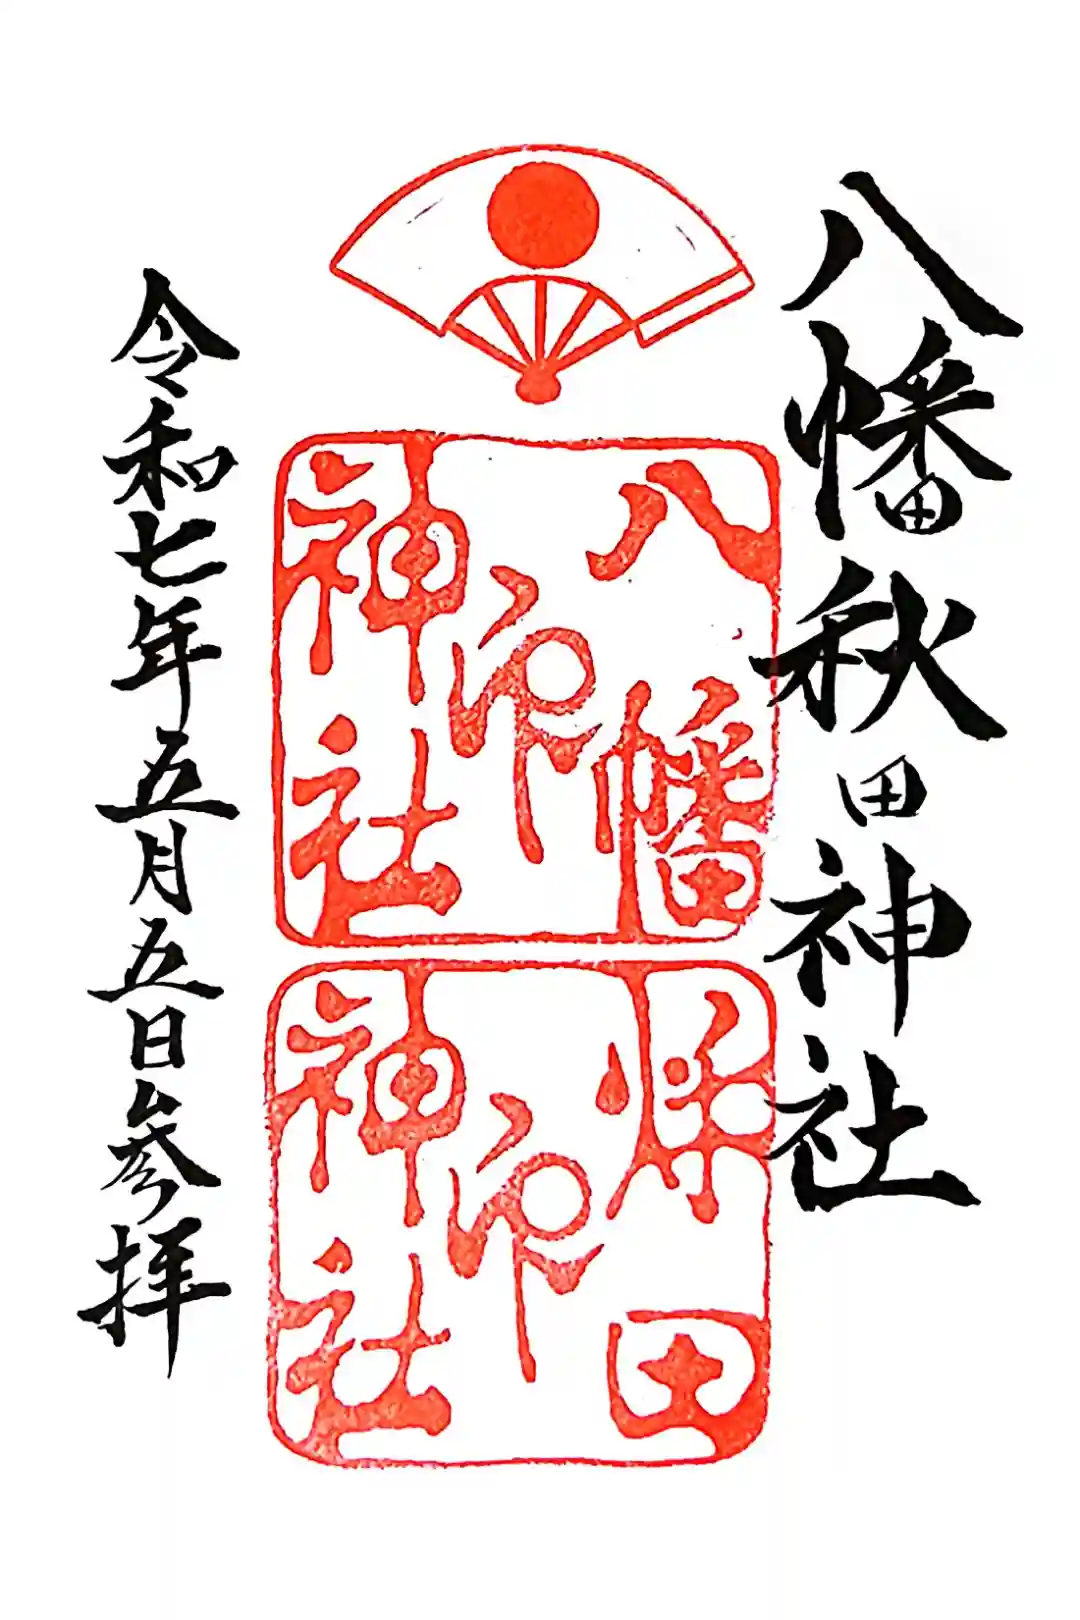 八幡秋田神社
八幡
神印
神社
秋田
神印
神社
令和七年五月五日参拝